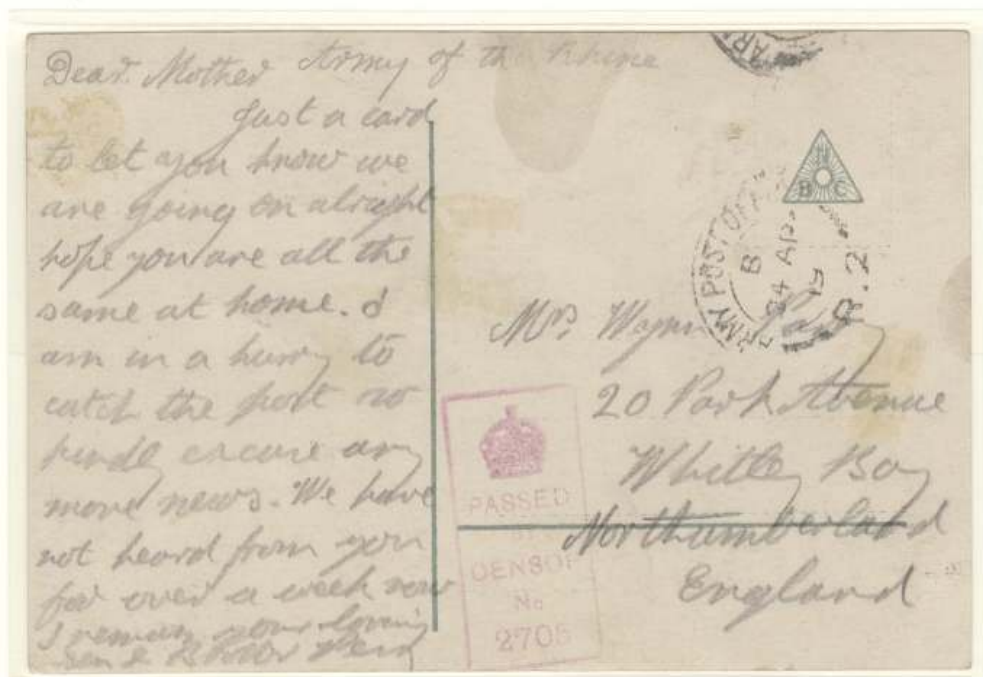 Dear Mother Army of the Rhine
Just a card
to let you know we
are going on alright
hope you are all the
same at home. I
am in a hurry to
catch the post so
kindly excuse any
more news. We have
not heard from you
for over a week now
I remain your loving
Son
ARMY POST OFFICE
B
24 AP
19
R.2
H
B C
Mrs
20 Park Avenue
Whitley Bay
Northumberland
England
PASSED
BY
CENSOR
No
2705